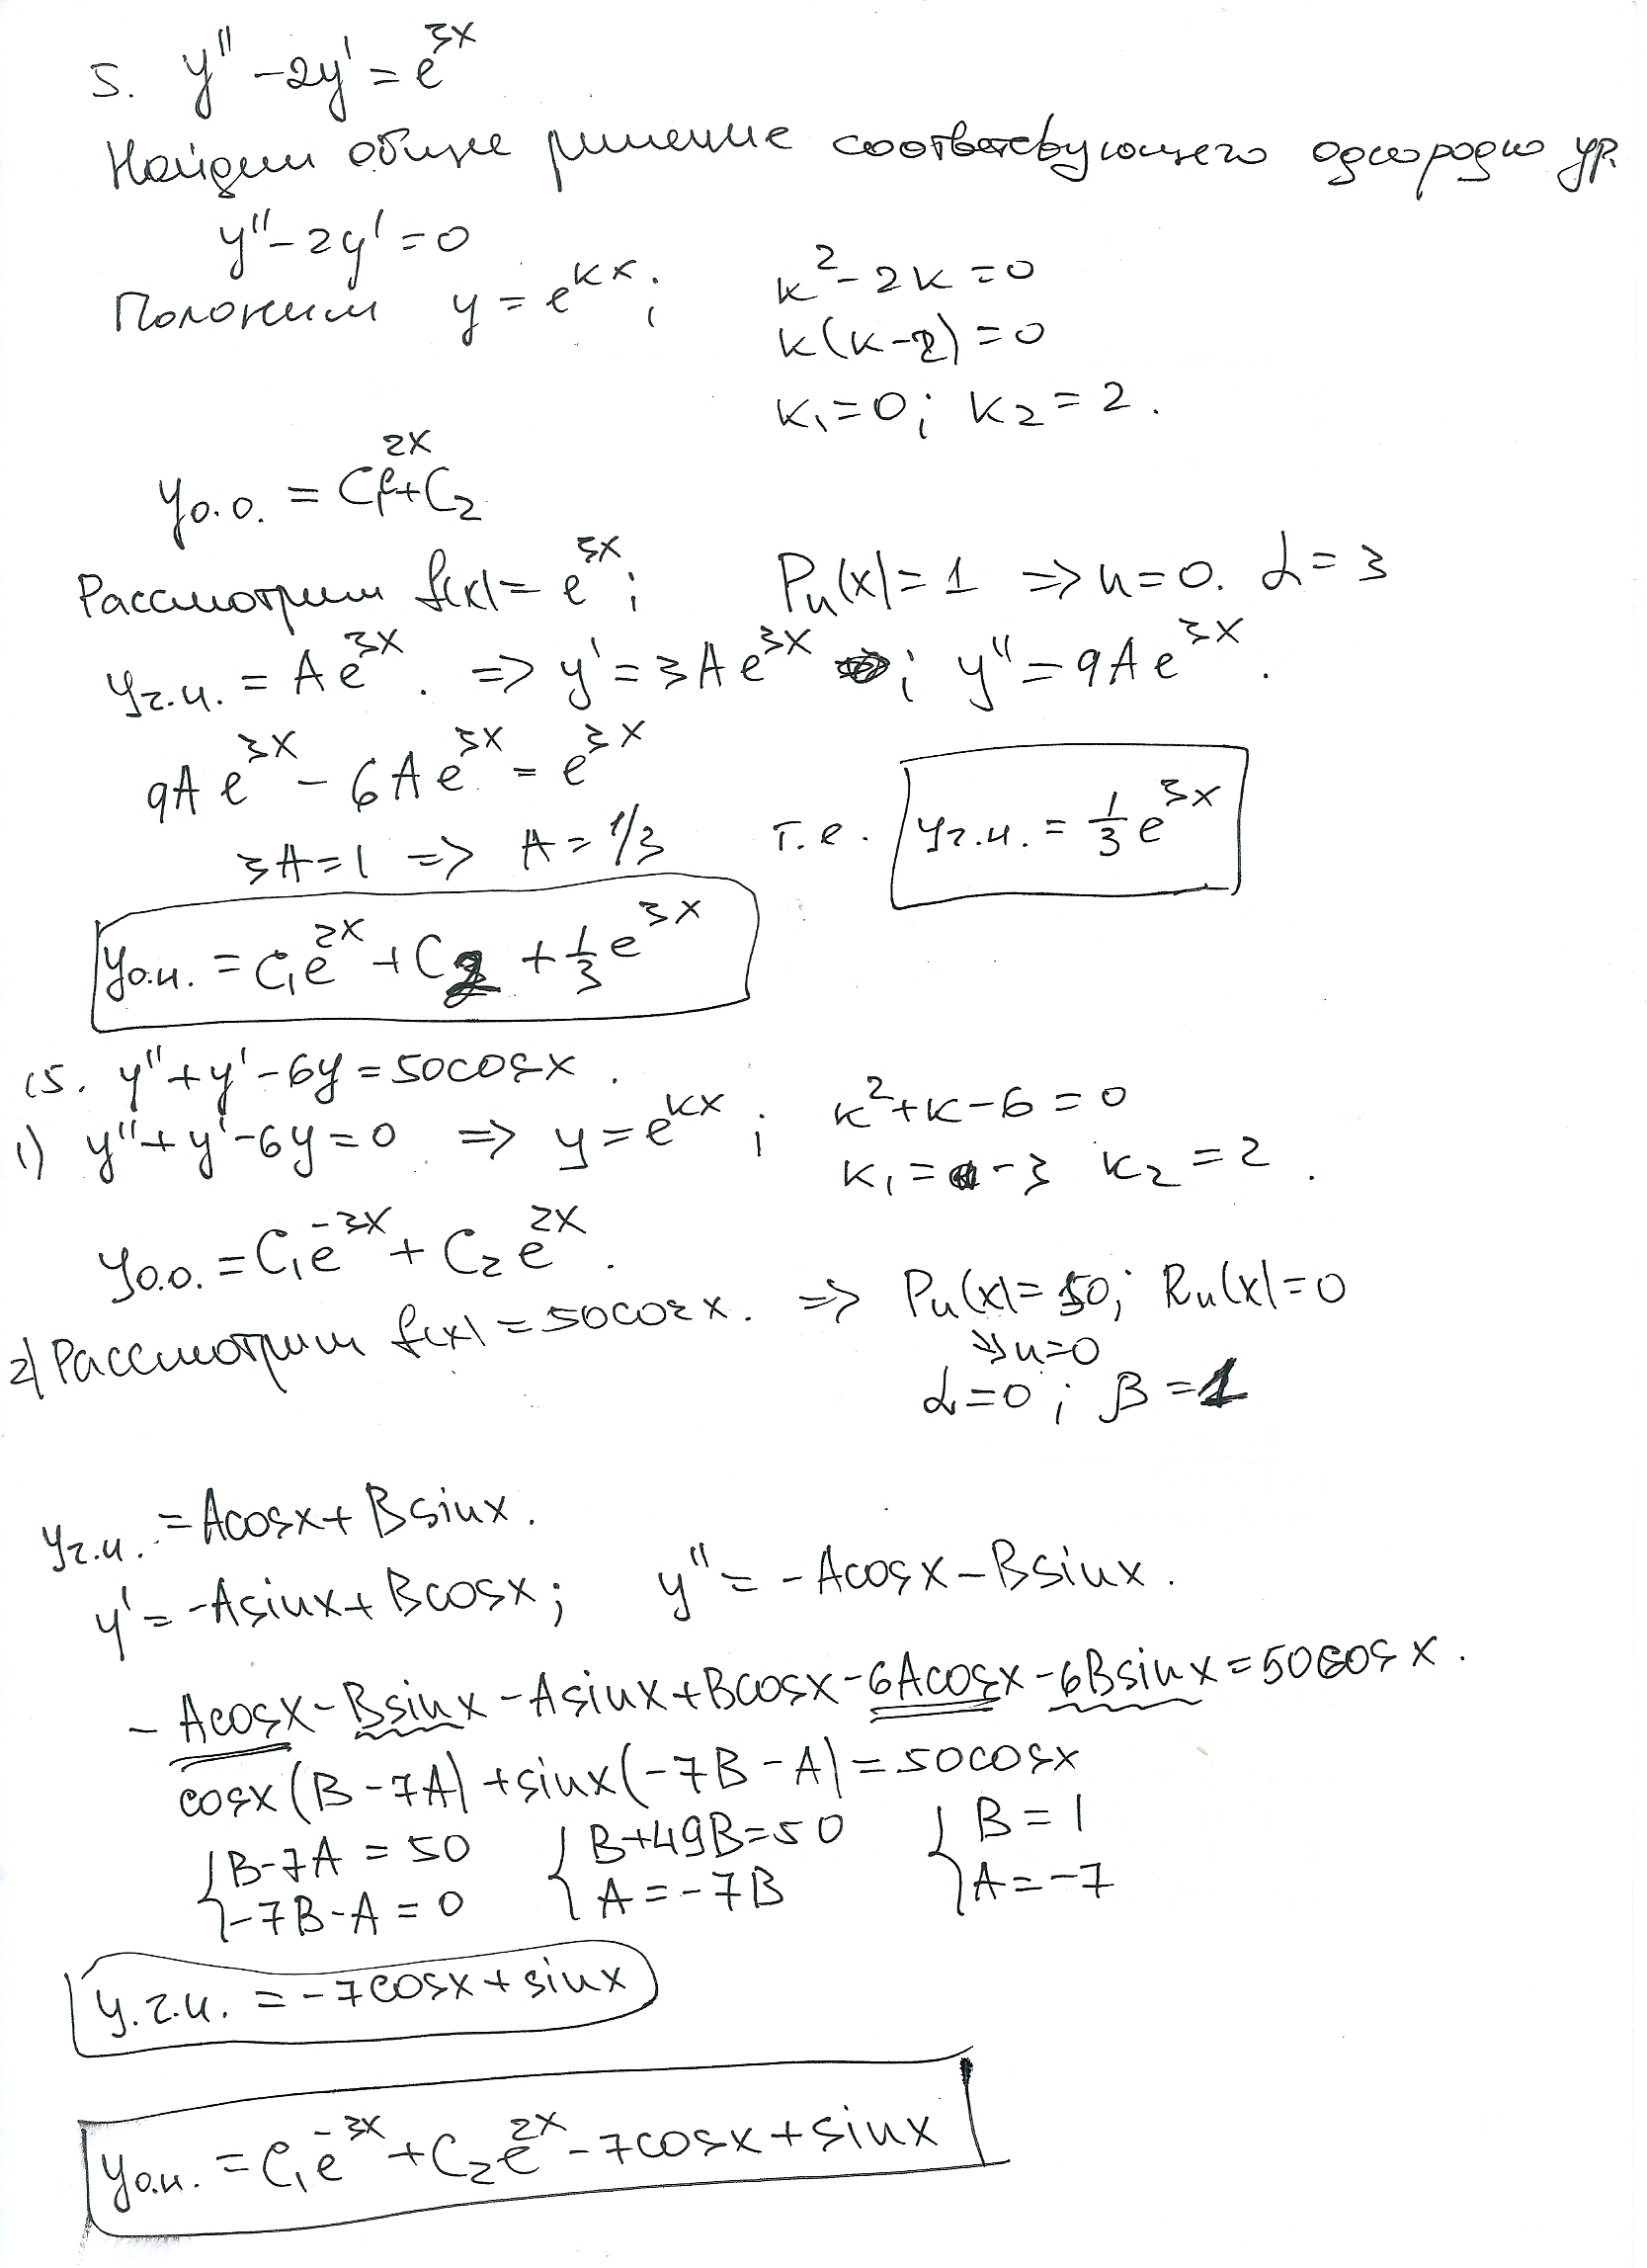 5. y'' - 2y' = e^{3x}
Найдем общее решение соответствующего однородно ур.
y'' - 2y' = 0
Положим y = e^{kx}; k^2 - 2k = 0
k(k-2) = 0
k_1 = 0; k_2 = 2.
y_{о.о.} = C_1e^{2x} + C_2
Рассмотрим f(x) = e^{3x}; P_n(x) = 1 => n = 0. α = 3
y_{ч.н.} = Ae^{3x}. => y' = 3Ae^{3x}; y'' = 9Ae^{3x}.
9Ae^{3x} - 6Ae^{3x} = e^{3x}
3A = 1 => A = 1/3 т.е. y_{ч.н.} = 1/3 e^{3x}
y_{о.н.} = C_1e^{2x} + C_2 + 1/3 e^{3x}
15. y'' + y' - 6y = 50cosx.
1) y'' + y' - 6y = 0 => y = e^{kx}; k^2 + k - 6 = 0
k_1 = -3 k_2 = 2.
y_{о.о.} = C_1e^{-3x} + C_2e^{2x}.
2) Рассмотрим f(x) = 50cosx. => P_n(x) = 50; R_n(x) = 0
=> n = 0
α = 0; β = 1
y_{ч.н.} = Acosx + Bsinx.
y' = -Asinx + Bcosx; y'' = -Acosx - Bsinx.
- Acosx - Bsinx - Asinx + Bcosx - 6Acosx - 6Bsinx = 50cosx.
cosx(B - 7A) + sinx(-7B - A) = 50cosx
{B - 7A = 50 {B + 49B = 50 {B = 1
-7B - A = 0 A = -7B A = -7
y.ч.н. = -7cosx + sinx
y_{о.н.} = C_1e^{-3x} + C_2e^{2x} - 7cosx + sinx